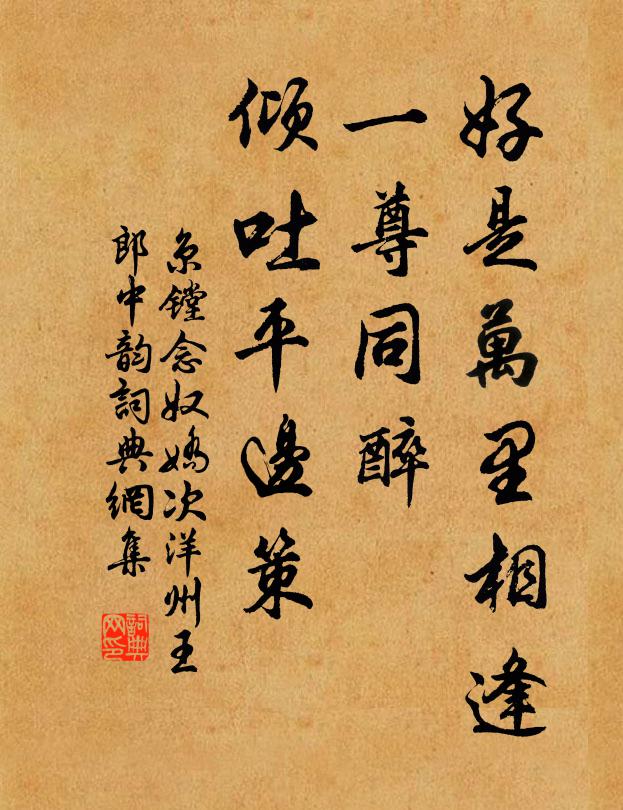 好是萬里相逢
一尊同醉
傾吐平邊策
京鏜念奴嬌次洋州王
郎中韵詞典網集
詞典网印